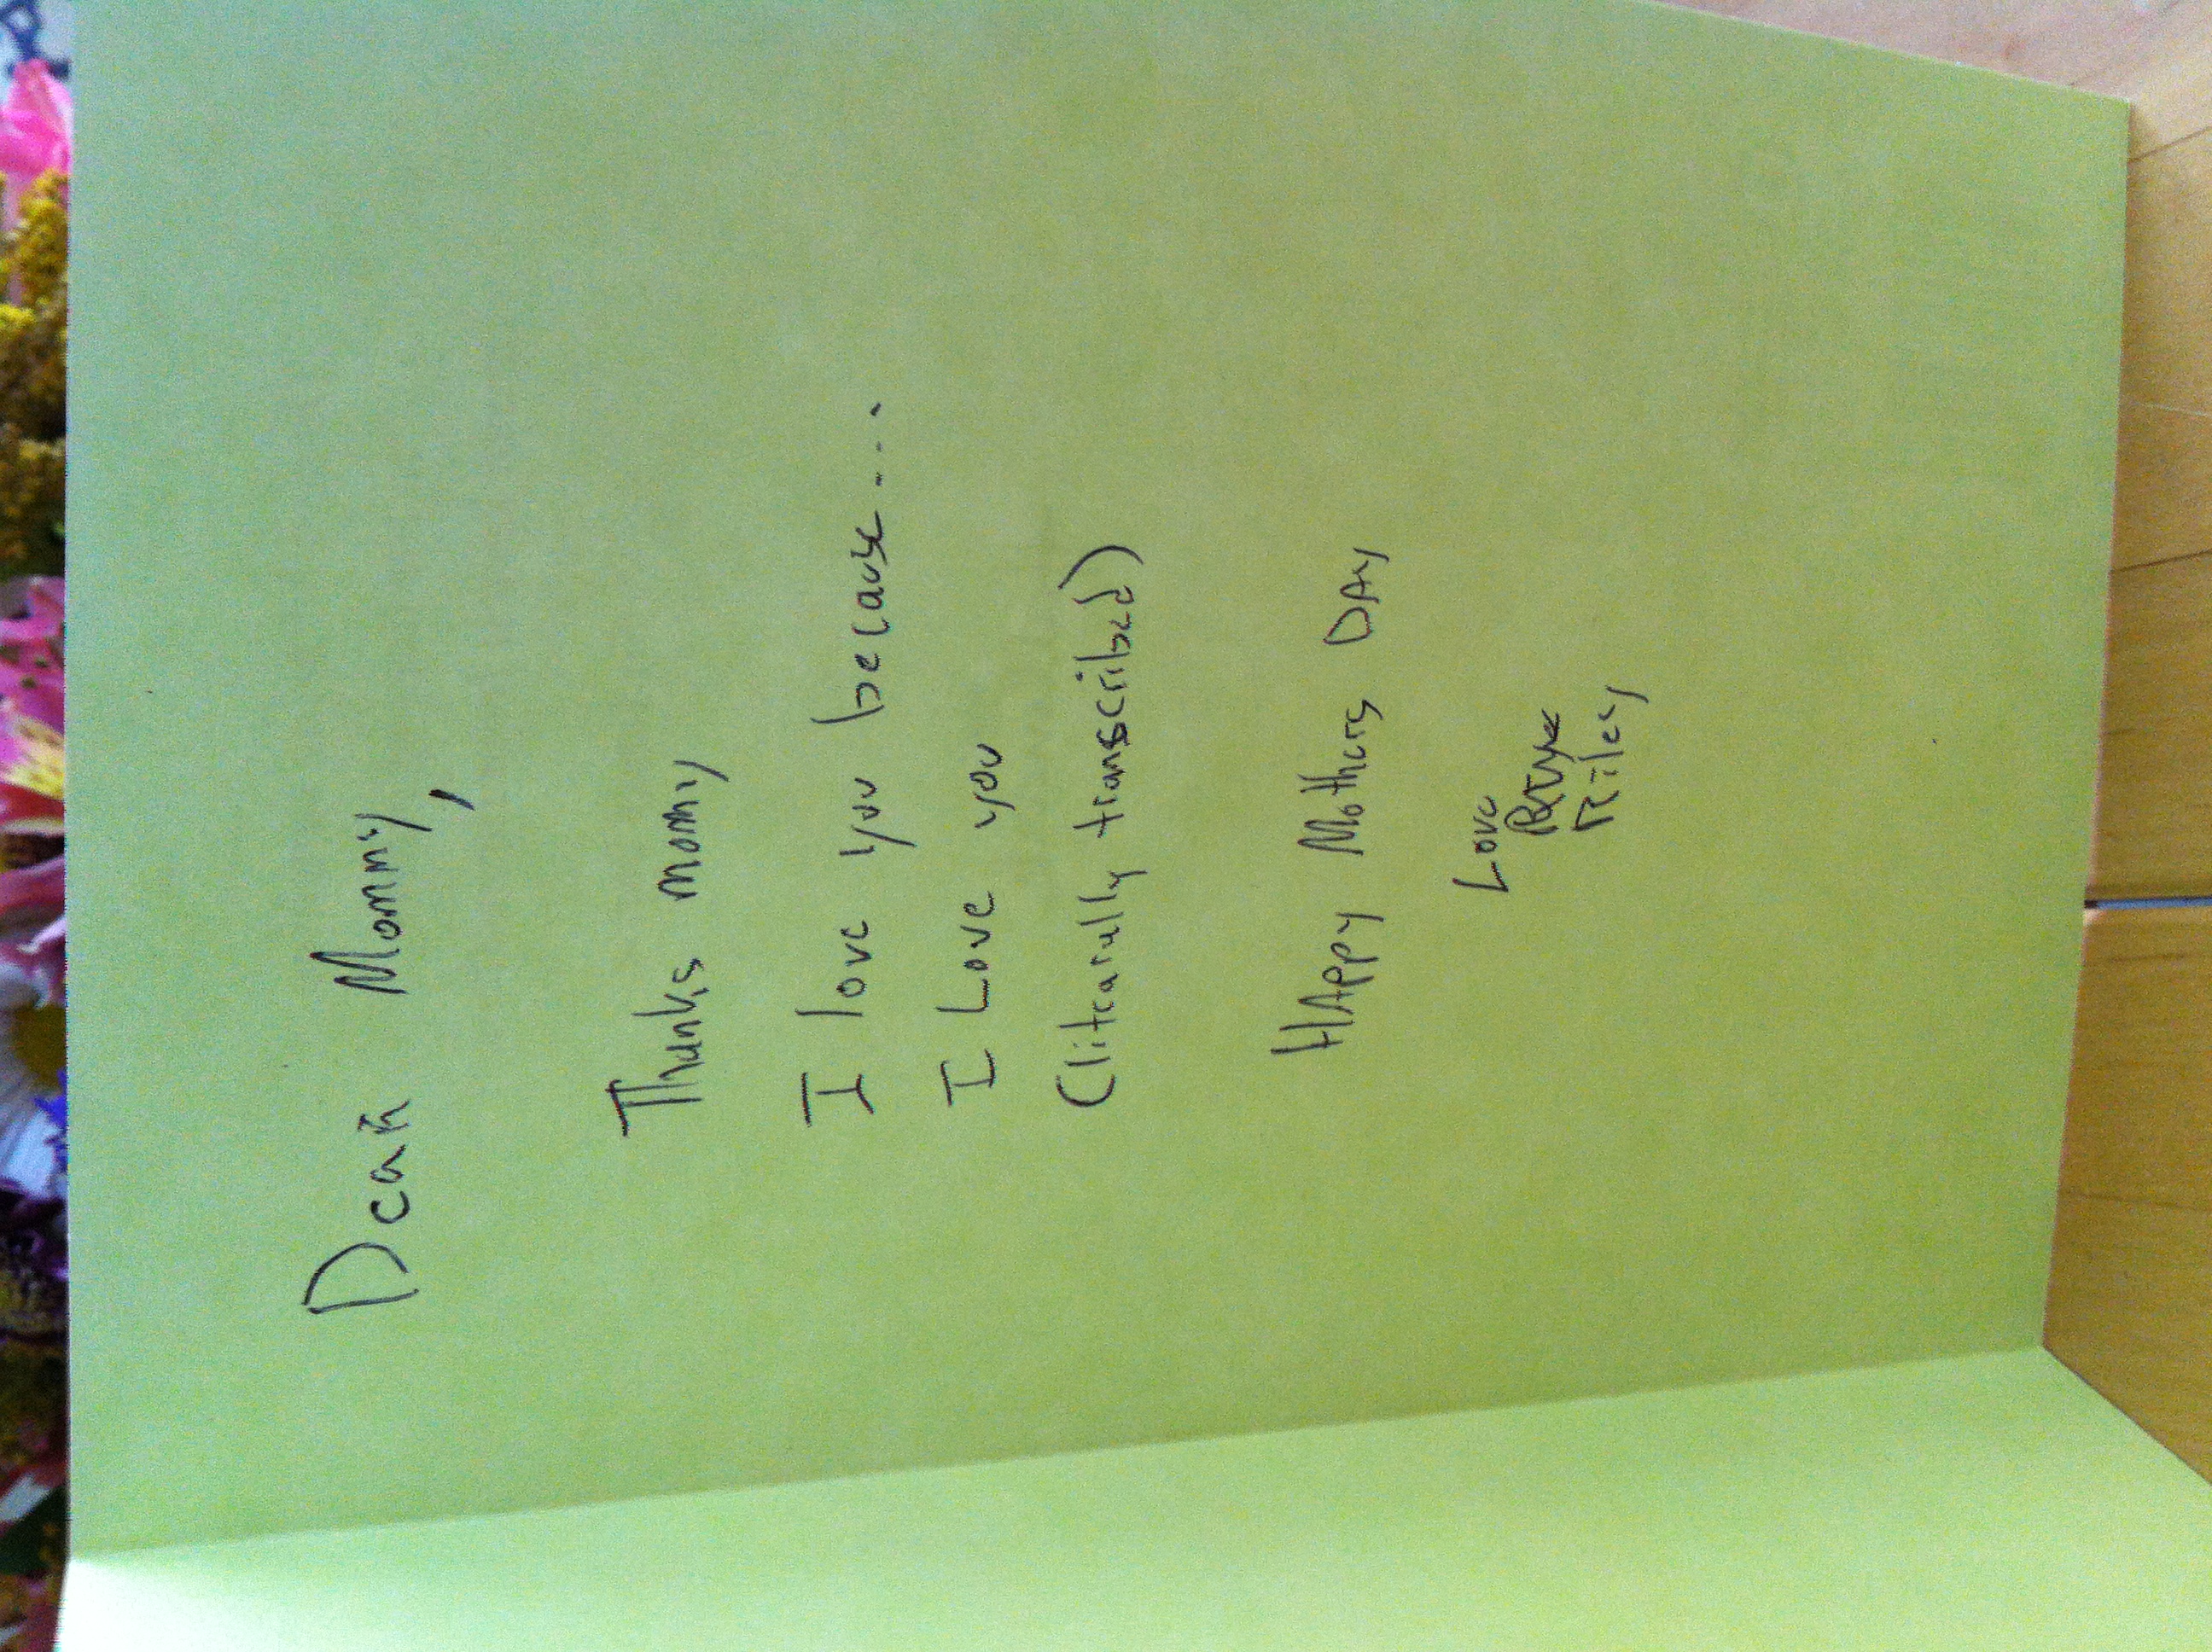 Dear Mommy,
Thanks mommy
I love you because....
I Love you
(literally transcribed)
HAppy Mothers DAy
Love
Riley